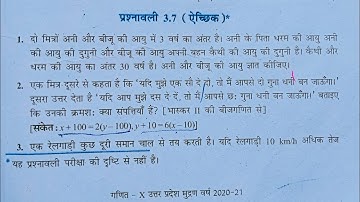 प्रश्नावली 3.7 ( ऐच्छिक )*
1. दो मित्रों अनी और बीजू की आयु में 3 वर्ष का अंतर है। अनी के पिता धरम की आयु अनी
की आयु की दुगुनी और बीजू की आयु अपनी बहन कैथी की आयु की दुगुनी है। कैथी और
धरम की आयु का अंतर 30 वर्ष है। अनी और बीजू की आयु ज्ञात कीजिए।
2. एक मित्र दूसरे से कहता है कि 'यदि मुझे एक सौ दे दो, तो मैं आपसे दो गुना धनी बन जाऊँगा।'
दूसरा उत्तर देता है 'यदि आप मुझे दस दे दें, तो मैं आपसे छः गुना धनी बन जाऊँगा।' बताइए
कि उनकी क्रमशः क्या संपत्तियाँ हैं? [भास्कर II की बीजगणित से]
[संकेत : x + 100 = 2(y – 100), y + 10 = 6(x – 10)]
3. एक रेलगाड़ी कुछ दूरी समान चाल से तय करती है। यदि रेलगाड़ी 10 km/h अधिक तेज
* यह प्रश्नावली परीक्षा की दृष्टि से नहीं है।
गणित – X उत्तर प्रदेश मुद्रण वर्ष 2020-21